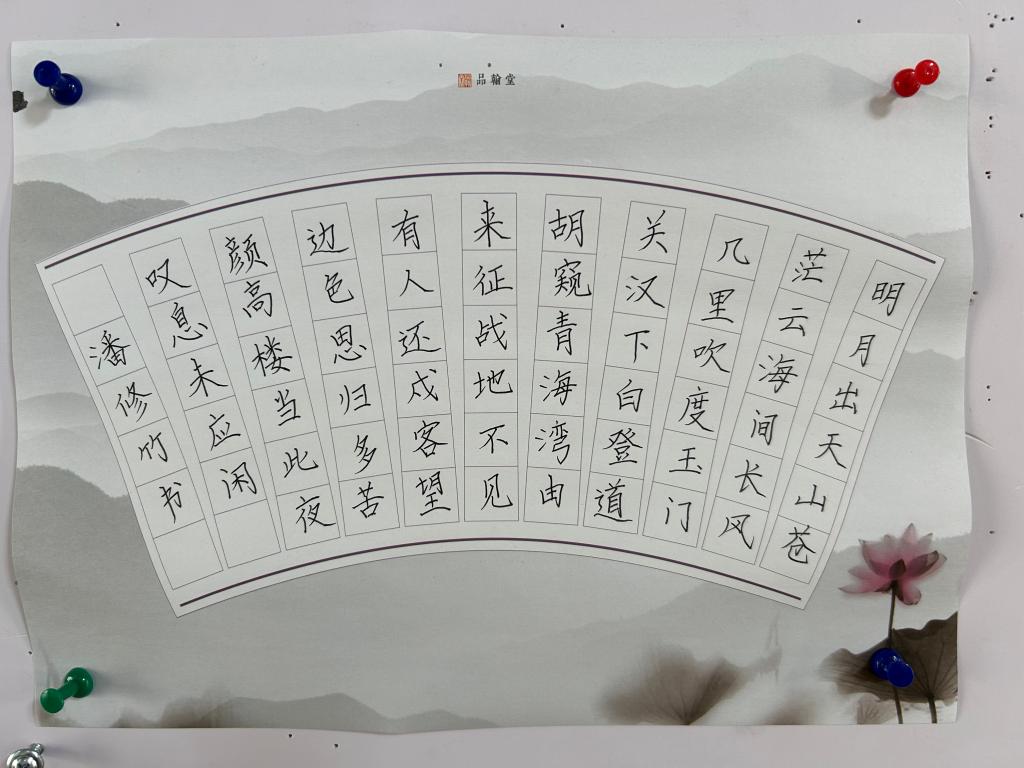 品翰堂
明月出天山苍
茫云海间长风
几里吹度玉门
关汉下白登道
胡窥青海湾由
来征战地不见
有人还戍客望
边色思归多苦
颜高楼当此夜
叹息未应闲
潘修竹书